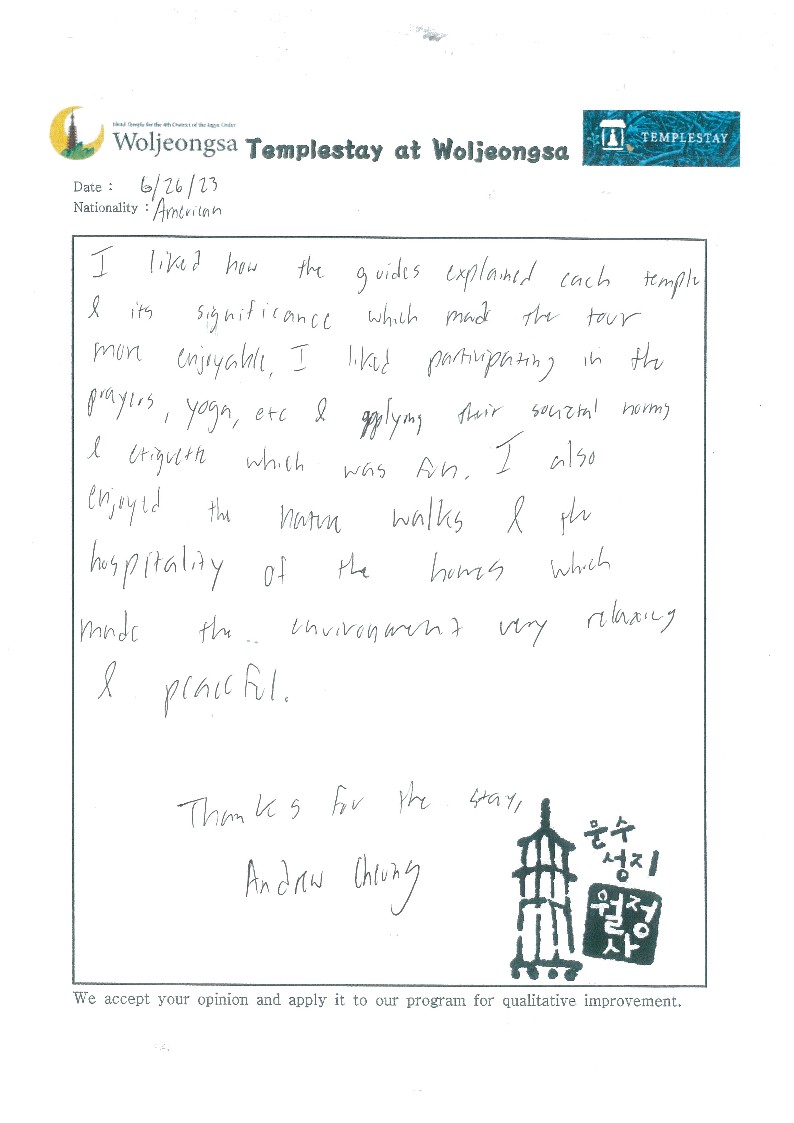 Head Temple for the 4th District of the Jogye Order
Woljeongsa Templestay at Woljeongsa
TEMPLESTAY
Date : 6/26/23
Nationality : American
I liked how the guides explained each temple
& its significance which made the tour
more enjoyable, I liked participating in the
prayers, yoga, etc & applying their societal norms
& etiquette which was fun. I also
enjoyed the nature walks & the
hospitality of the homes which
made the environment very relaxing
& peaceful.
Thanks for the stay,
Andrew Cheung
문수
성지
월정
사
We accept your opinion and apply it to our program for qualitative improvement.